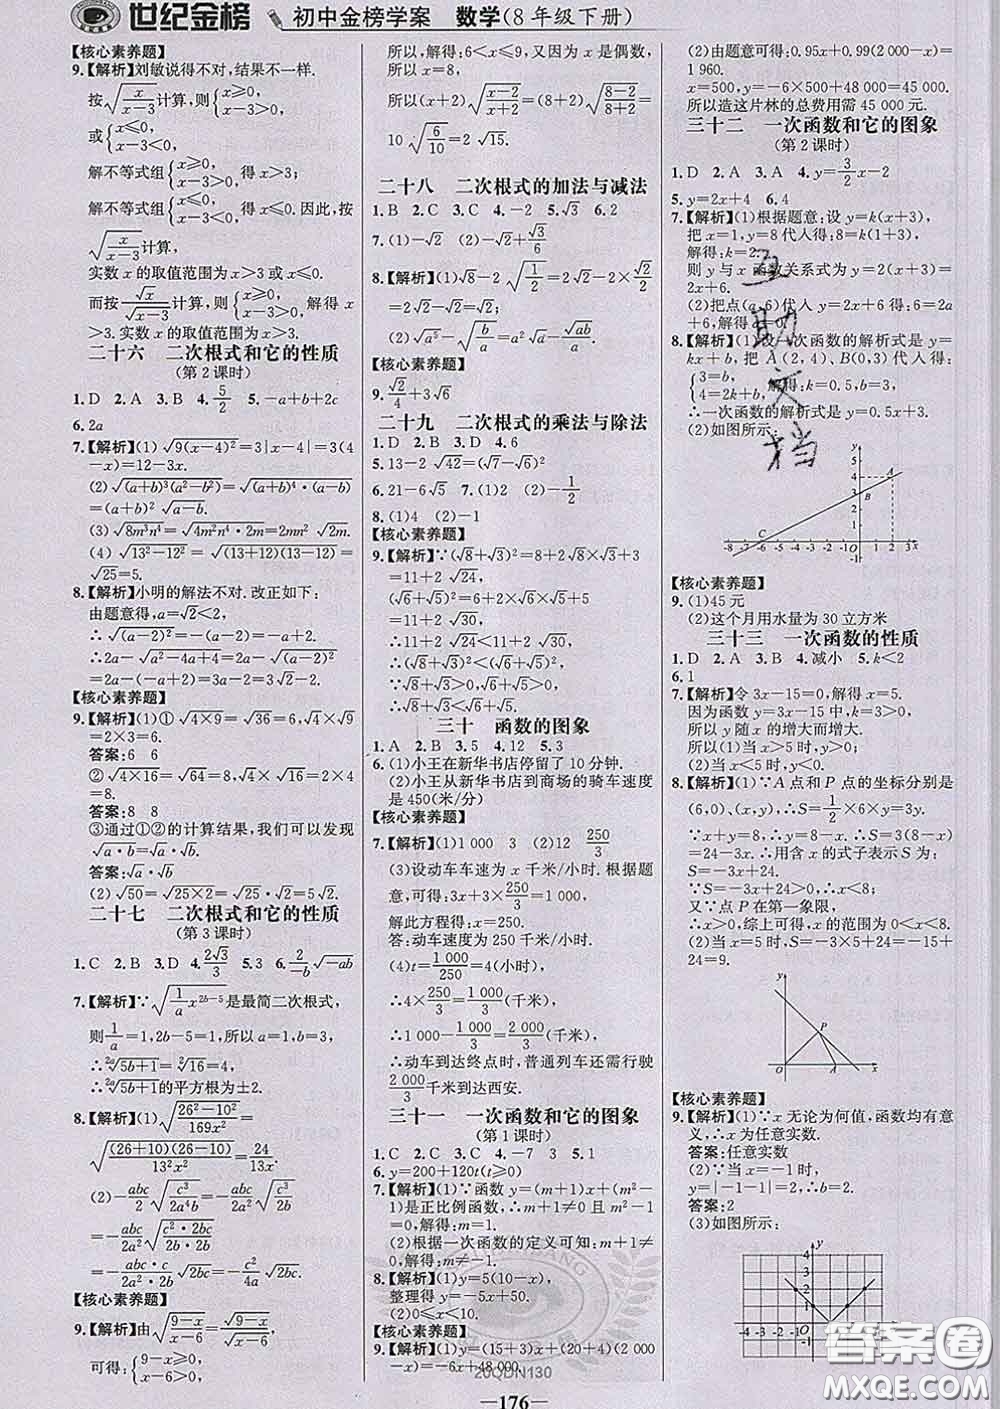 世纪金榜 初中金榜学案 数学(8年级下册)
【核心素养题】
9.【解析】刘敏说得不对,结果不一样.
按√(x/(x−3))计算,则{x≥0, x−3>0,
或{x≤0, x−3<0,
解不等式组{x≥0, x−3>0,得x>3;
解不等式组{x≤0, x−3<0,得x≤0.因此,按
√(x/(x−3))计算,
实数x的取值范围为x>3或x≤0;
而按√x/√(x−3)计算,则{x≥0, x−3>0,解得x
>3.实数x的取值范围为x>3.
二十六 二次根式和它的性质
(第2课时)
1.D 2.A 3.B 4.5/2 5.−a+b+2c
6.2a
7.【解析】(1)√(9(x−4)²)=3|x−4|=3(4
−x)=12−3x.
(2)√((a+b)³(a²−b²))=√((a+b)⁴·(a−b))
=(a+b)²√(a−b).
(3)√(8m³n⁴)=√(4m²n⁴·2m)=2mn²√(2m).
(4)√(13²−12²)=√((13+12)(13−12))=
√25=5.
8.【解析】小明的解法不对.改正如下:
由题意得,a=√2<2,
∴√((a−2)²)=−(a−2),
∴2a−√(a²−4a+4)=2a−√((a−2)²)=
2a+(a−2)=3a−2=3√2−2.
【核心素养题】
9.【解析】(1)①√(4×9)=√36=6,√4×√9
=2×3=6.
答案:6 6
②√(4×16)=√64=8,√4×√16=2×4
=8.
答案:8 8
③通过①②的计算结果,我们可以发现
√(a·b)=√a·√b.
答案:√a·√b
(2)√50=√(25×2)=√25·√2=5√2.
二十七 二次根式和它的性质
(第3课时)
1.C 2.B 3.D 4.2√3/3 5.3 6.2/(−b)√(−ab)
7.【解析】∵√((1/a)x^(2b−5))是最简二次根式,
则1/a=1,2b−5=1,所以a=1,b=3,
∴^(2a)√(5b+1)=²√16=4.
∴^(2a)√(5b+1)的平方根为±2.
8.【解析】(1)√((26²−10²)/(169x²))=
√((26+10)(26−10))/√(13²x²)=24/(13x).
(2)−(abc/2a²)√(c³/(2a⁴b))
=−(abc/2a²)√(c²·2bc)/√(a⁴·4b²)
=−(abc·c)/(2a²·a²·2b)√(2bc)=−(c²/4a³)√(2bc).
【核心素养题】
9.【解析】由√((9−x)/(x−6))=√(9−x)/√(x−6),
可得:{9−x≥0, x−6>0,
所以,解得:6<x≤9,又因为x是偶数,
所以x=8,
所以(x+2)√((x−2)/(x+2))=(8+2)√((8−2)/(8+2))=
10√(6/10)=2√15.
二十八 二次根式的加法与减法
1.B 2.C 3.C 4.−2 5.√3 6.2
7.(1)−√2 (2)√2+√3/6
8.【解析】(1)√8−2√(1/2)=2√2−2×√2/2
=2√2−√2=√2.
(2)√(a⁵)−√(b/a)=a²√a−√(ab)/a.
【核心素养题】
9.√2/4+3√6
二十九 二次根式的乘法与除法
1.D 2.B 3.D 4.6
5.13−2√42=(√7−√6)²
6.21−6√5 7.(1)2 (2)−1/2
8.(1)4 (2)−1
【核心素养题】
9.【解析】∵(√8+√3)²=8+2√8×√3+3
=11+2√24,
(√6+√5)²=6+2×√6×√5+5
=11+2√30,
∴11+2√24<11+2√30,
∴(√8+√3)²<(√6+√5)²,
∵√8+√3>0,√6+√5>0,
∴√8+√3<√6+√5.
三十 函数的图象
1.A 2.B 3.5 4.12 5.3
6.(1)小王在新华书店停留了10分钟.
(2)小王从新华书店到商场的骑车速度
是450(米/分)
【核心素养题】
7.【解析】(1)1 000 3 (2)12 250/3
(3)设动车车速为x千米/小时.根据题
意,可得:3x+3×250/3=1 000,
解此方程得:x=250.
答:动车速度为250千米/小时.
(4)t=1 000/250=4(小时),
∴4×250/3=1 000/3(千米),
∴1 000−1 000/3=2 000/3(千米),
∴动车到达终点时,普通列车还需行驶
2 000/3千米到达西安.
三十一 一次函数和它的图象
(第1课时)
1.C 2.C 3.C 4.−7 3 5.1
6.y=200+120t(t≥0)
7.【解析】(1)∵函数y=(m+1)x+(m²−
1)是正比例函数,∴m+1≠0且m²−1
=0,解得:m=1.
(2)根据一次函数的定义可知:m+1≠
0,解得:m≠−1.
8.【解析】(1)y=5(10−x),
整理得y=−5x+50.
(2)0≤x≤10.
【核心素养题】
9.【解析】(1)y=(15+3)x+(20+4)(2 000
−x)=−6x+48 000.
(2)由题意可得:0.95x+0.99(2 000−x)=
1 960.
x=500,y=−6×500+48 000=45 000.
所以造这片林的总费用需45 000元.
三十二 一次函数和它的图象
(第2课时)
1.D 2.A 3.A 4.y=3/2x−2
5.y=2x+4 6.4
7.【解析】(1)根据题意:设y=k(x+3),
把x=1,y=8代入得:8=k(1+3),
解得:k=2.
则y与x函数关系式为y=2(x+3)=
2x+6.
(2)把点(a,6)代入y=2x+6得:6=2a
+6,解得a=0.
8.【解析】(1)设一次函数的解析式是y=
kx+b,把A(2,4)、B(0,3)代入得:
{3=b, 4=2k+b,解得:k=0.5,b=3,
∴一次函数的解析式是y=0.5x+3.
(2)如图所示:
y
5
4
3
2
1
A
B
C
-8 -7 -6 -5 -4 -3 -2 -1 O 1 2 3 x
-1
【核心素养题】
9.(1)45元
(2)这个月用水量为30立方米
三十三 一次函数的性质
1.D 2.A 3.B 4.减小 5.k<2
6.1
7.【解析】令3x−15=0,解得x=5.
因为函数y=3x−15中的k=3>0,
所以y随x的增大而增大.
所以(1)当x>5时,y>0;
(2)当x≤5时,y≤0.
8.【解析】(1)∵A点和P点的坐标分别是
(6,0),(x,y),∴S=1/2×6×y=3y.
∵x+y=8,∴y=8−x,∴S=3(8−x)=
=24−3x.∴用含x的式子表示S为:
S=−3x+24.
∵S=−3x+24>0,∴x<8;
又∵点P在第一象限,
∴x>0,综上可得,x的范围为0<x<8.
(2)当x=5时,S=−3×5+24=−15+
24=9.
y
P
O A x
【核心素养题】
9.【解析】(1)∵x无论为何值,函数均有意
义,∴x为任意实数.
答案:任意实数
(2)∵当x=−1时,
y=|−1−1|=2,∴b=2.
答案:2
(3)如图所示:
y
4
3
2
1
-4 -3 -2 -1 O
互助文档
答案圈
MXQE.COM
20QDN130
—176—